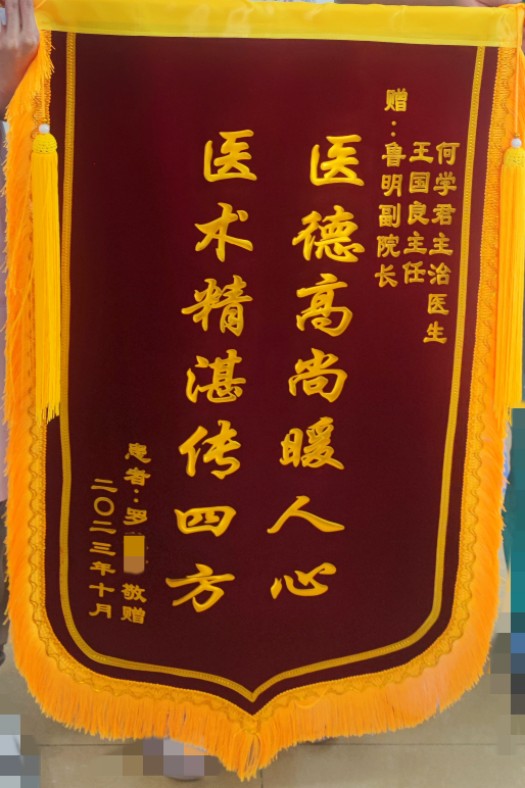 何学君主治医生
王国良主任
赠：鲁明副院长
医德高尚暖人心
医术精湛传四方
患者：罗 敬赠
二〇二三年十月